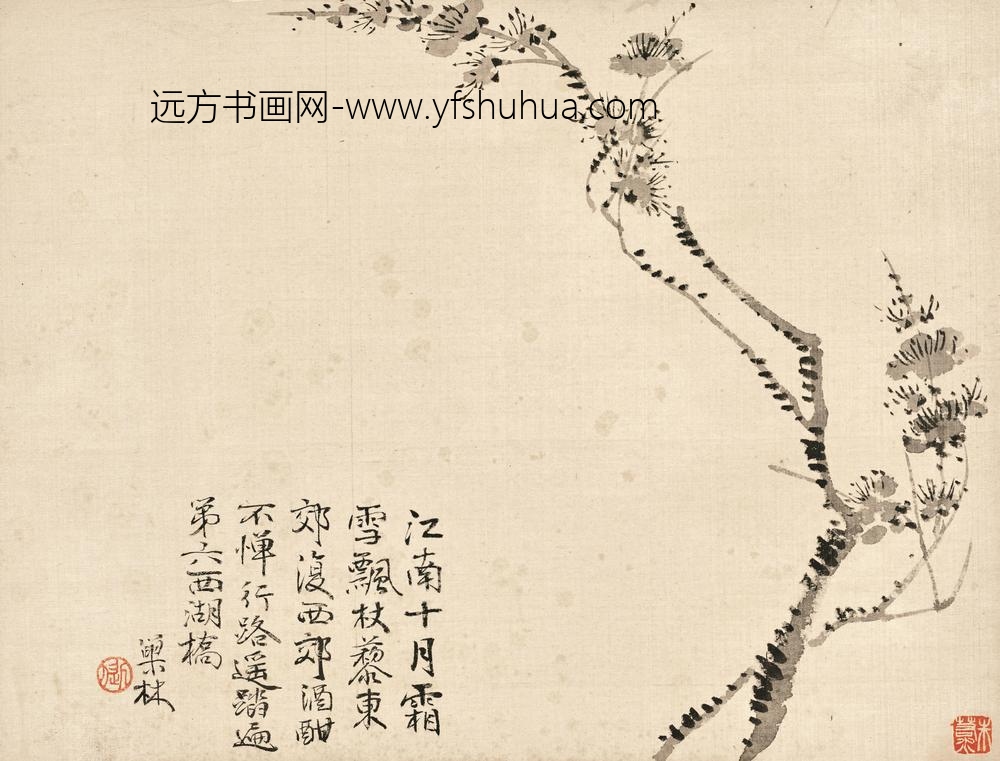 远方书画网-www.yfshuhua.com
江南十月霜
雪飄杖藜東
郊復西郊酒酣
不惮行路遥踏遍
第六西湖橋
林